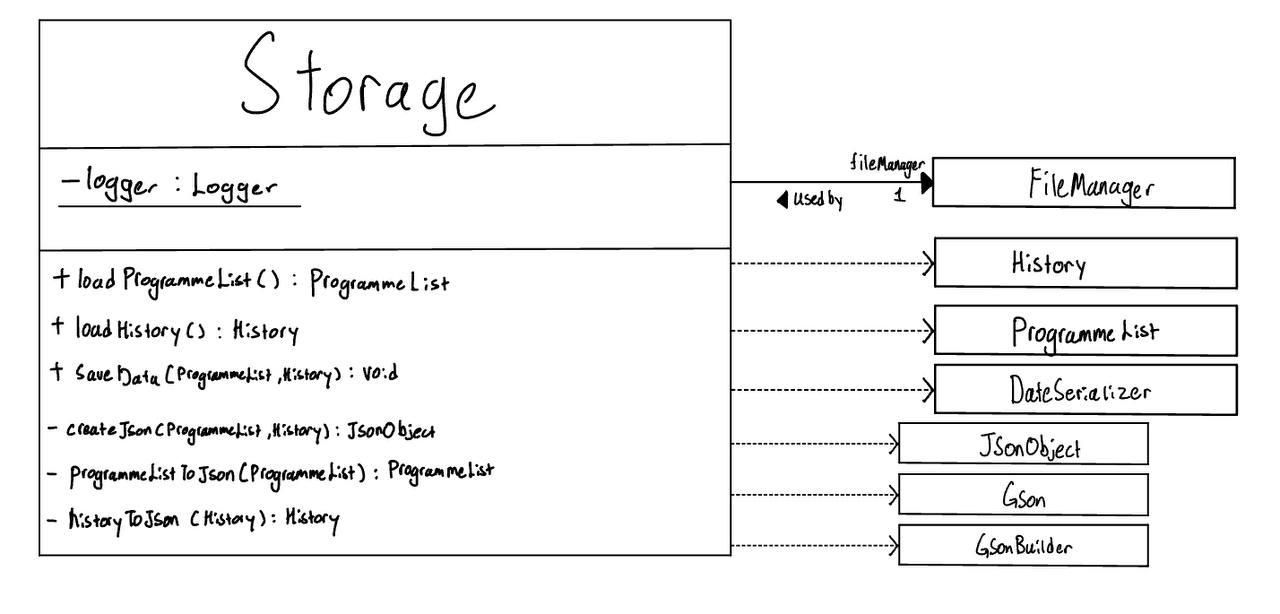 Storage
- logger : Logger
+ load ProgrammeList() : ProgrammeList
+ loadHistory() : History
+ SaveData (ProgrammeList, History) : Void
- createJson (ProgrammeList, History) : JsonObject
- programmeListToJson (ProgrammeList) : ProgrammeList
- historyToJson (History) : History
fileManager
◀ Used by 1
FileManager
History
ProgrammeList
DateSerializer
JsonObject
Gson
GsonBuilder